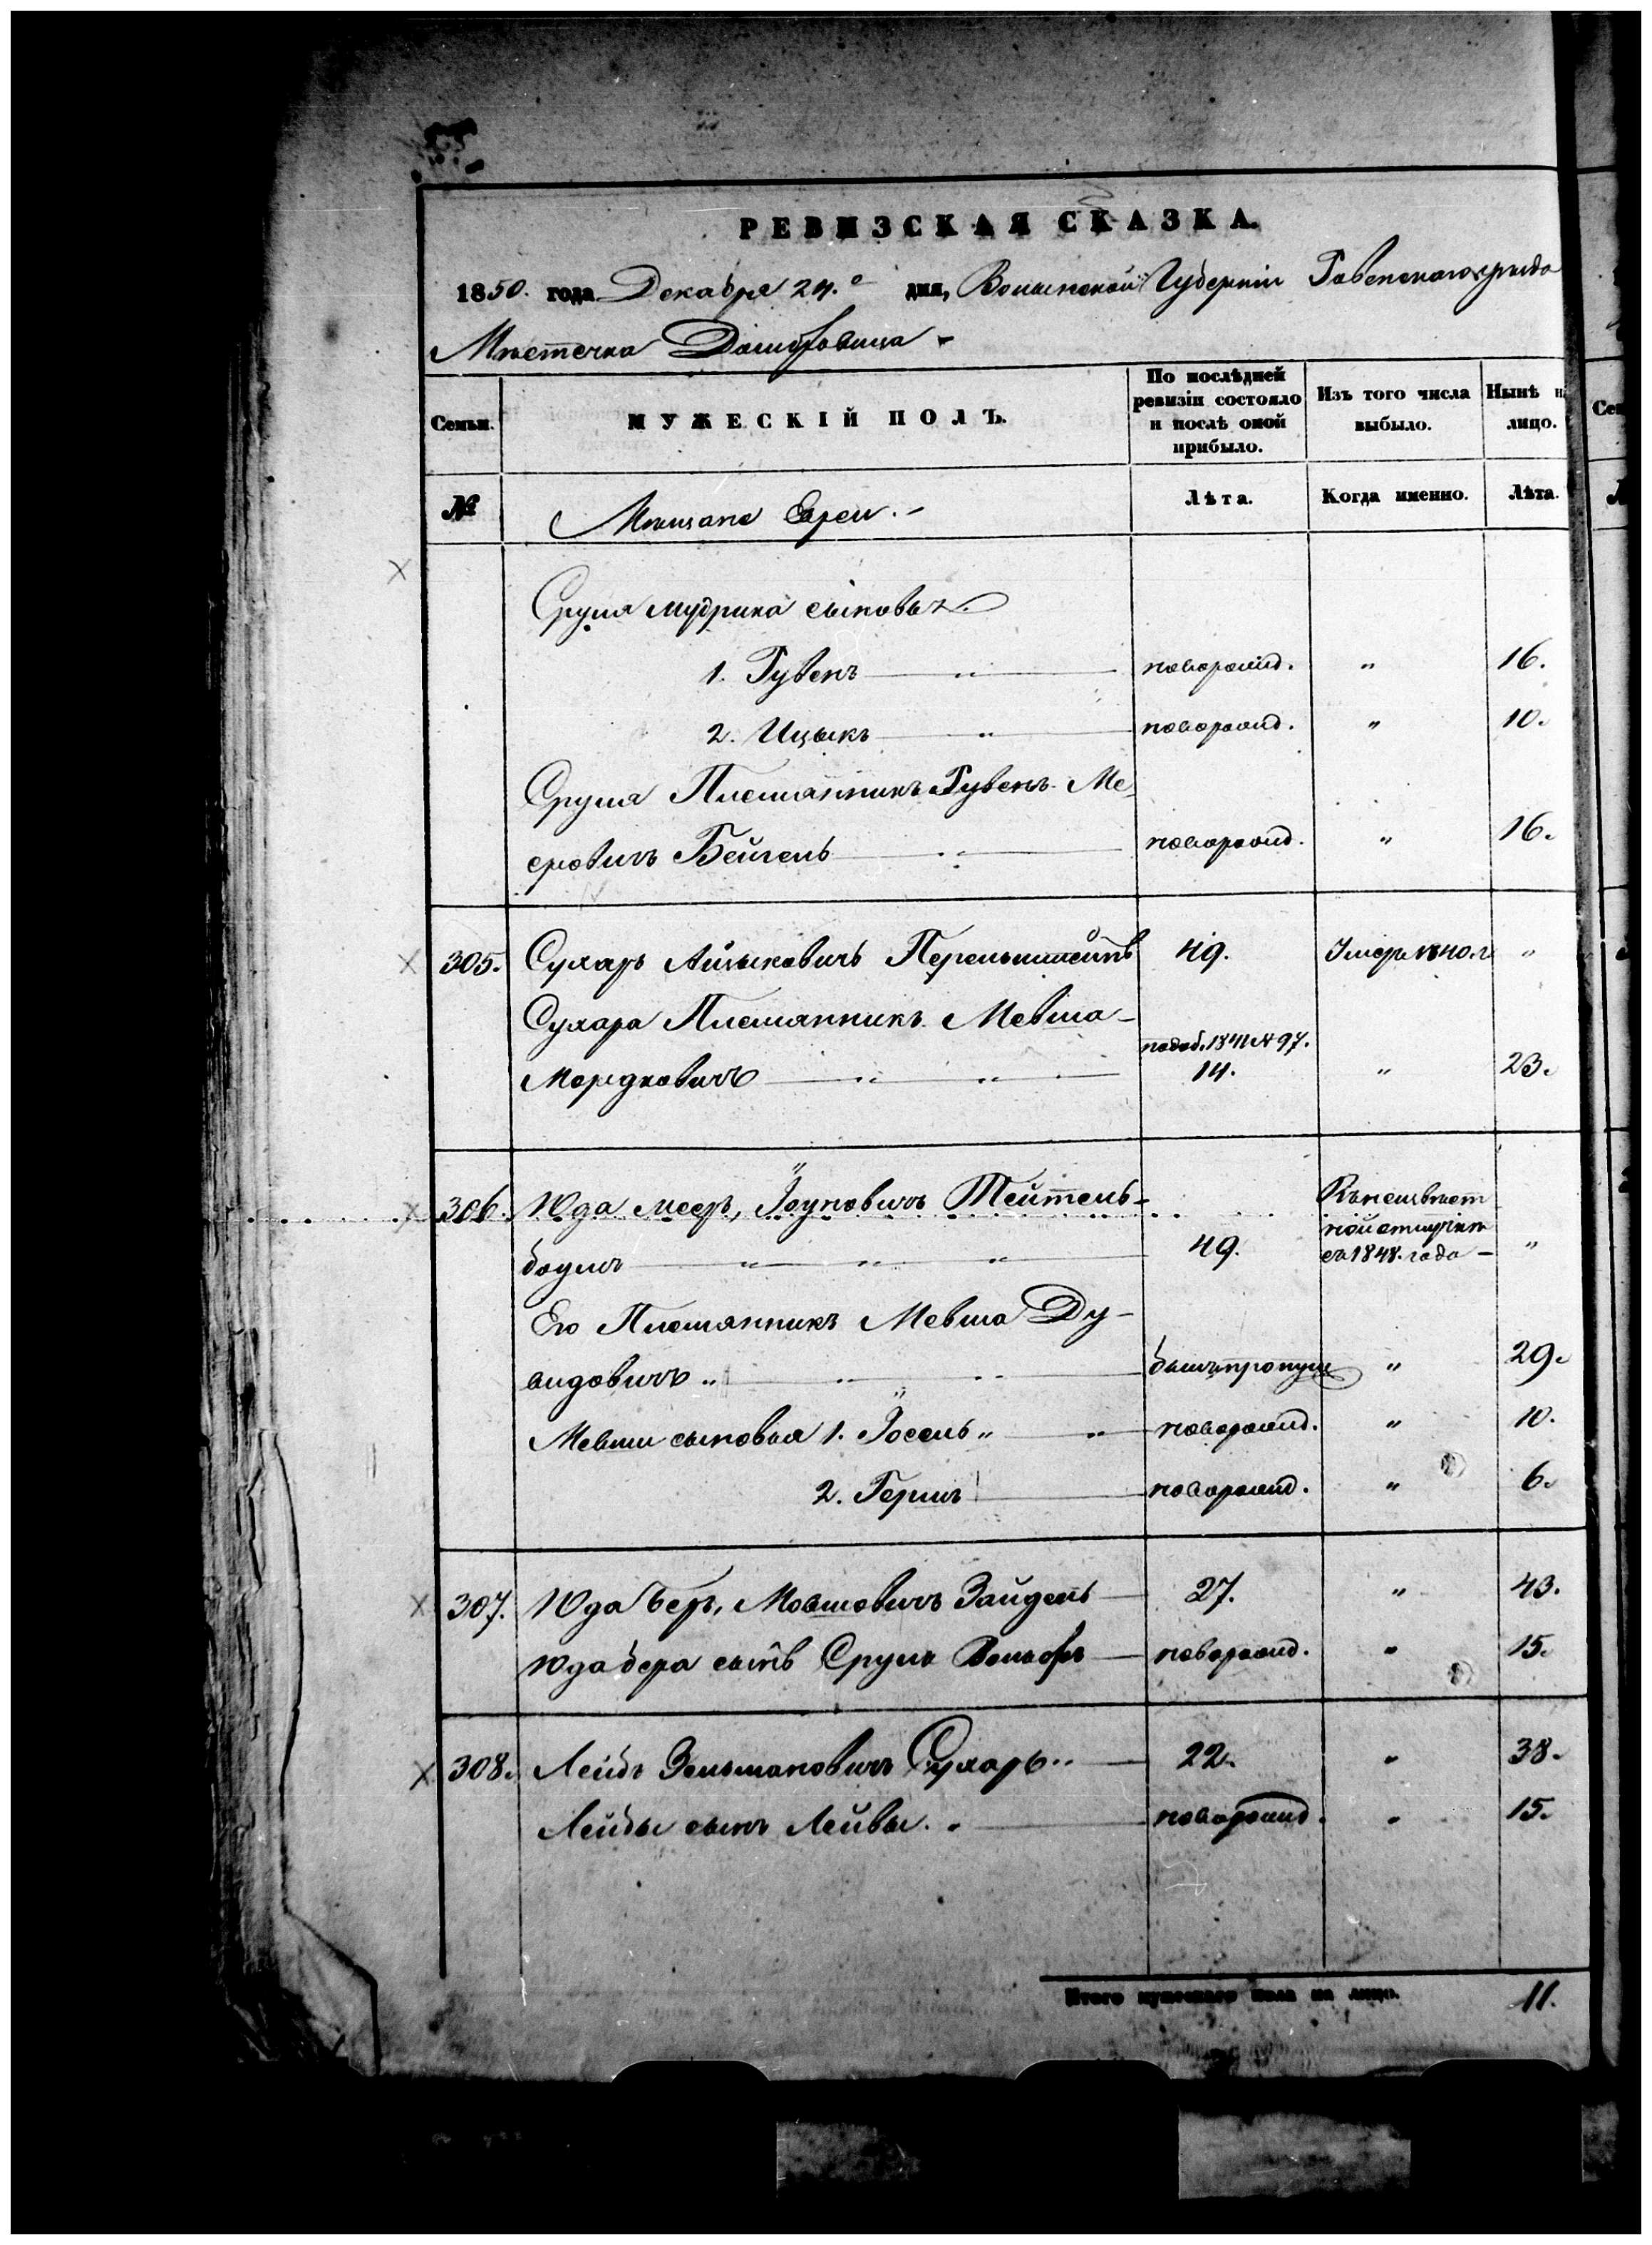 РЕВИЗСКАЯ СКАЗКА.
1850. года Декабря 24.го дня, Волынской Губерніи Ровенскаго уѣзда
Мѣстечка Домбровица
Семьи. МУЖЕСКІЙ ПОЛЪ. По послѣдней ревизіи состояло и послѣ оной прибыло. Изъ того числа выбыло. Нынѣ на лицо.
№ Мѣщане Евреи. Лѣта. Когда именно. Лѣта.
Сруля Мудрика сыновья.
1. Рувенъ " новорожд. " 16.
2. Ицыкъ " новорожд. " 10.
Сруля Племянникъ Рувенъ Ме-
еровичъ Бейгель " новорожд. " 16.
305. Сухаръ Айзыковичъ 49. Умеръ 1840.г. "
Сухара Племянникъ Мевша
Мордковичъ " " подоб. 1841 № 97. 14. " 23.
306. Юда Мееръ, Іоуновичъ Тейтель-
баумъ " " " 49. Въ неизвѣстной отлучкѣ съ 1848. года "
Его Племянникъ Мевша Ду-
видовичъ " " " былъ пропущ. " 29.
Мевши сыновья 1. Іосель " " новорожд. " 10.
2. Гершъ новорожд. " 6.
307. Юда Беръ, Мовшовичъ Зайдель 27. " 43.
Юда бера сынъ Сруль Вольфъ новорожд. " 15.
308. Лейбъ Зельмановичъ Сухаръ " 22. " 38.
Лейбы сынъ Лейвы. " новорожд. " 15.
Итого мужескаго пола на лицо. 11.